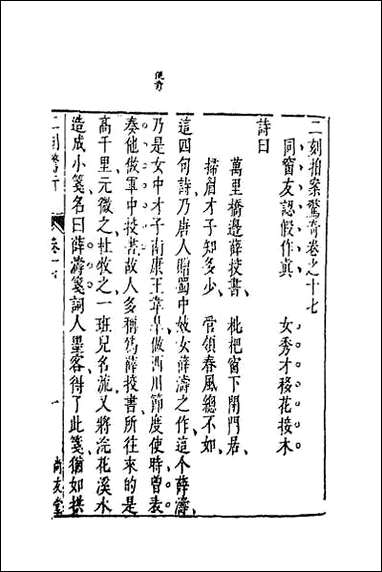 二刻拍案驚奇卷之十七
同窗友認假作真 女秀才移花接木
詩曰
萬里橋邊薛校書 枇杷窗下閉門居
掃眉才子知多少 管領春風總不如
這四句詩乃唐人贈蜀中妓女薛濤之作這个薛濤
乃是女中才子南康王韋皐做西川節度使時曾表
奏他做軍中校書故人多稱為薛校書所往來的是
高千里元微之杜牧之一班兒名流又將浣花溪水
造成小箋名曰薛濤箋詞人墨客得了此箋猶如拱
二刻驚奇 卷十七 一 尚友堂